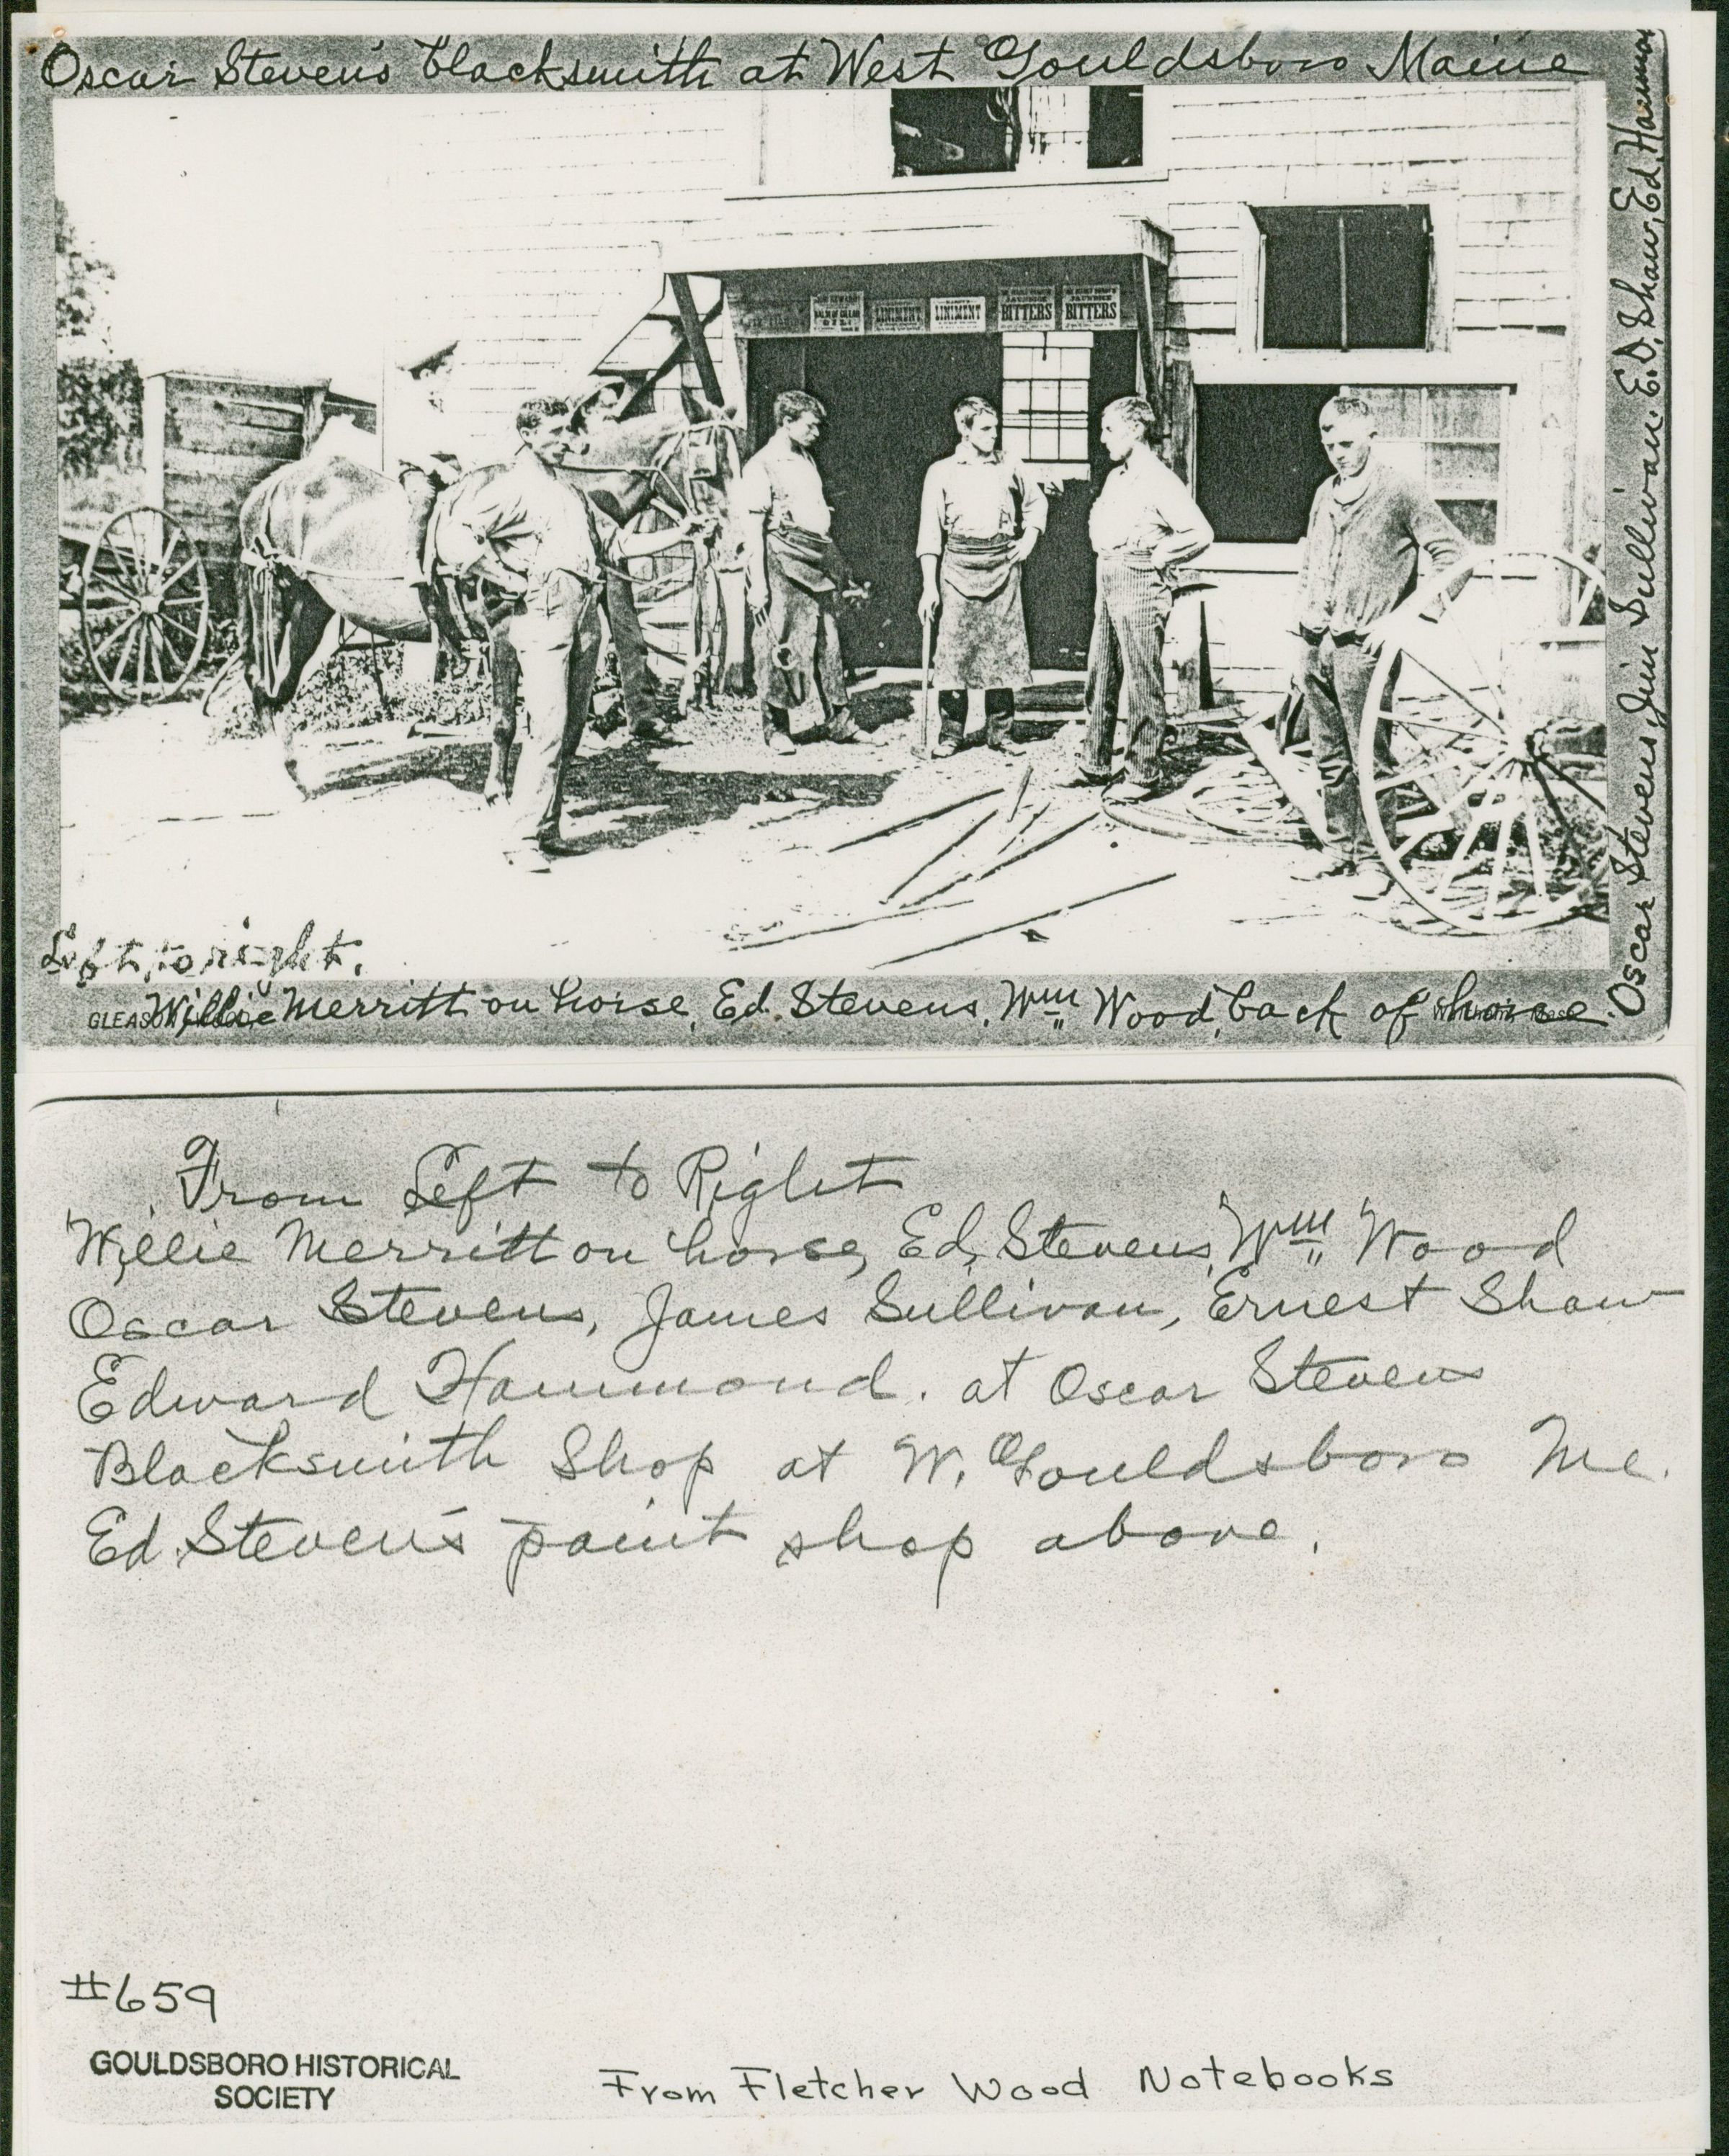 Oscar Steven's blacksmith at West Gouldsboro Maine
OIL
LINIMENT
LINIMENT
BITTERS
JAUNDICE
BITTERS
Left to right.
Willie Merritt on horse, Ed. Stevens, Wm Wood, back of horse.
Oscar Stevens, Jim Sullivan. E.D. Shaw, Ed. Hammon
From Left to Right
Willie Merritt on horse, Ed. Stevens, Wm Wood
Oscar Stevens, James Sullivan, Ernest Shaw
Edward Hammond. at Oscar Stevens
Blacksmith Shop at W. Gouldsboro Me.
Ed. Steven's paint shop above.
#659
GOULDSBORO HISTORICAL
SOCIETY
From Fletcher Wood Notebooks